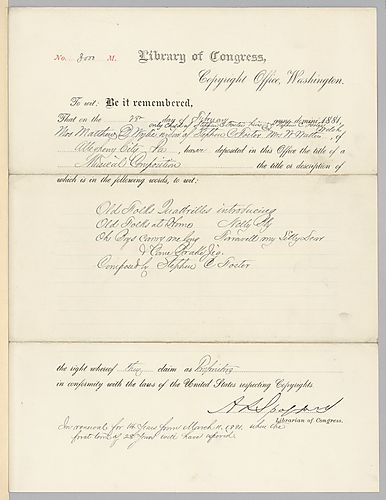 No. 3000 M. Library of Congress,
Copyright Office, Washington.
To wit: Be it remembered,
That on the 28 day of February anno domini, 1881,
only child of Stephen C. Foster
Mrs Matthew D. Wylie, widow of Stephen C. Foster Mrs W Welch, of
Allegheny City, Pa, have deposited in this Office the title of a
Musical Composition the title or description of
which is in the following words, to wit:
Old Folks Quadrilles introducing
Old Folks at Home Nelly Bly
Oh Boys Carry me long Farewell my Lilly Dear
& Cane Brake Jig.
Composed by Stephen C Foster
the right whereof they claim as Proprietors
in conformity with the laws of the United States respecting Copyrights.
A R Spofford
Librarian of Congress.
In renewal for 14 years from March 11, 1881, when the
first term of 28 years will have expired.